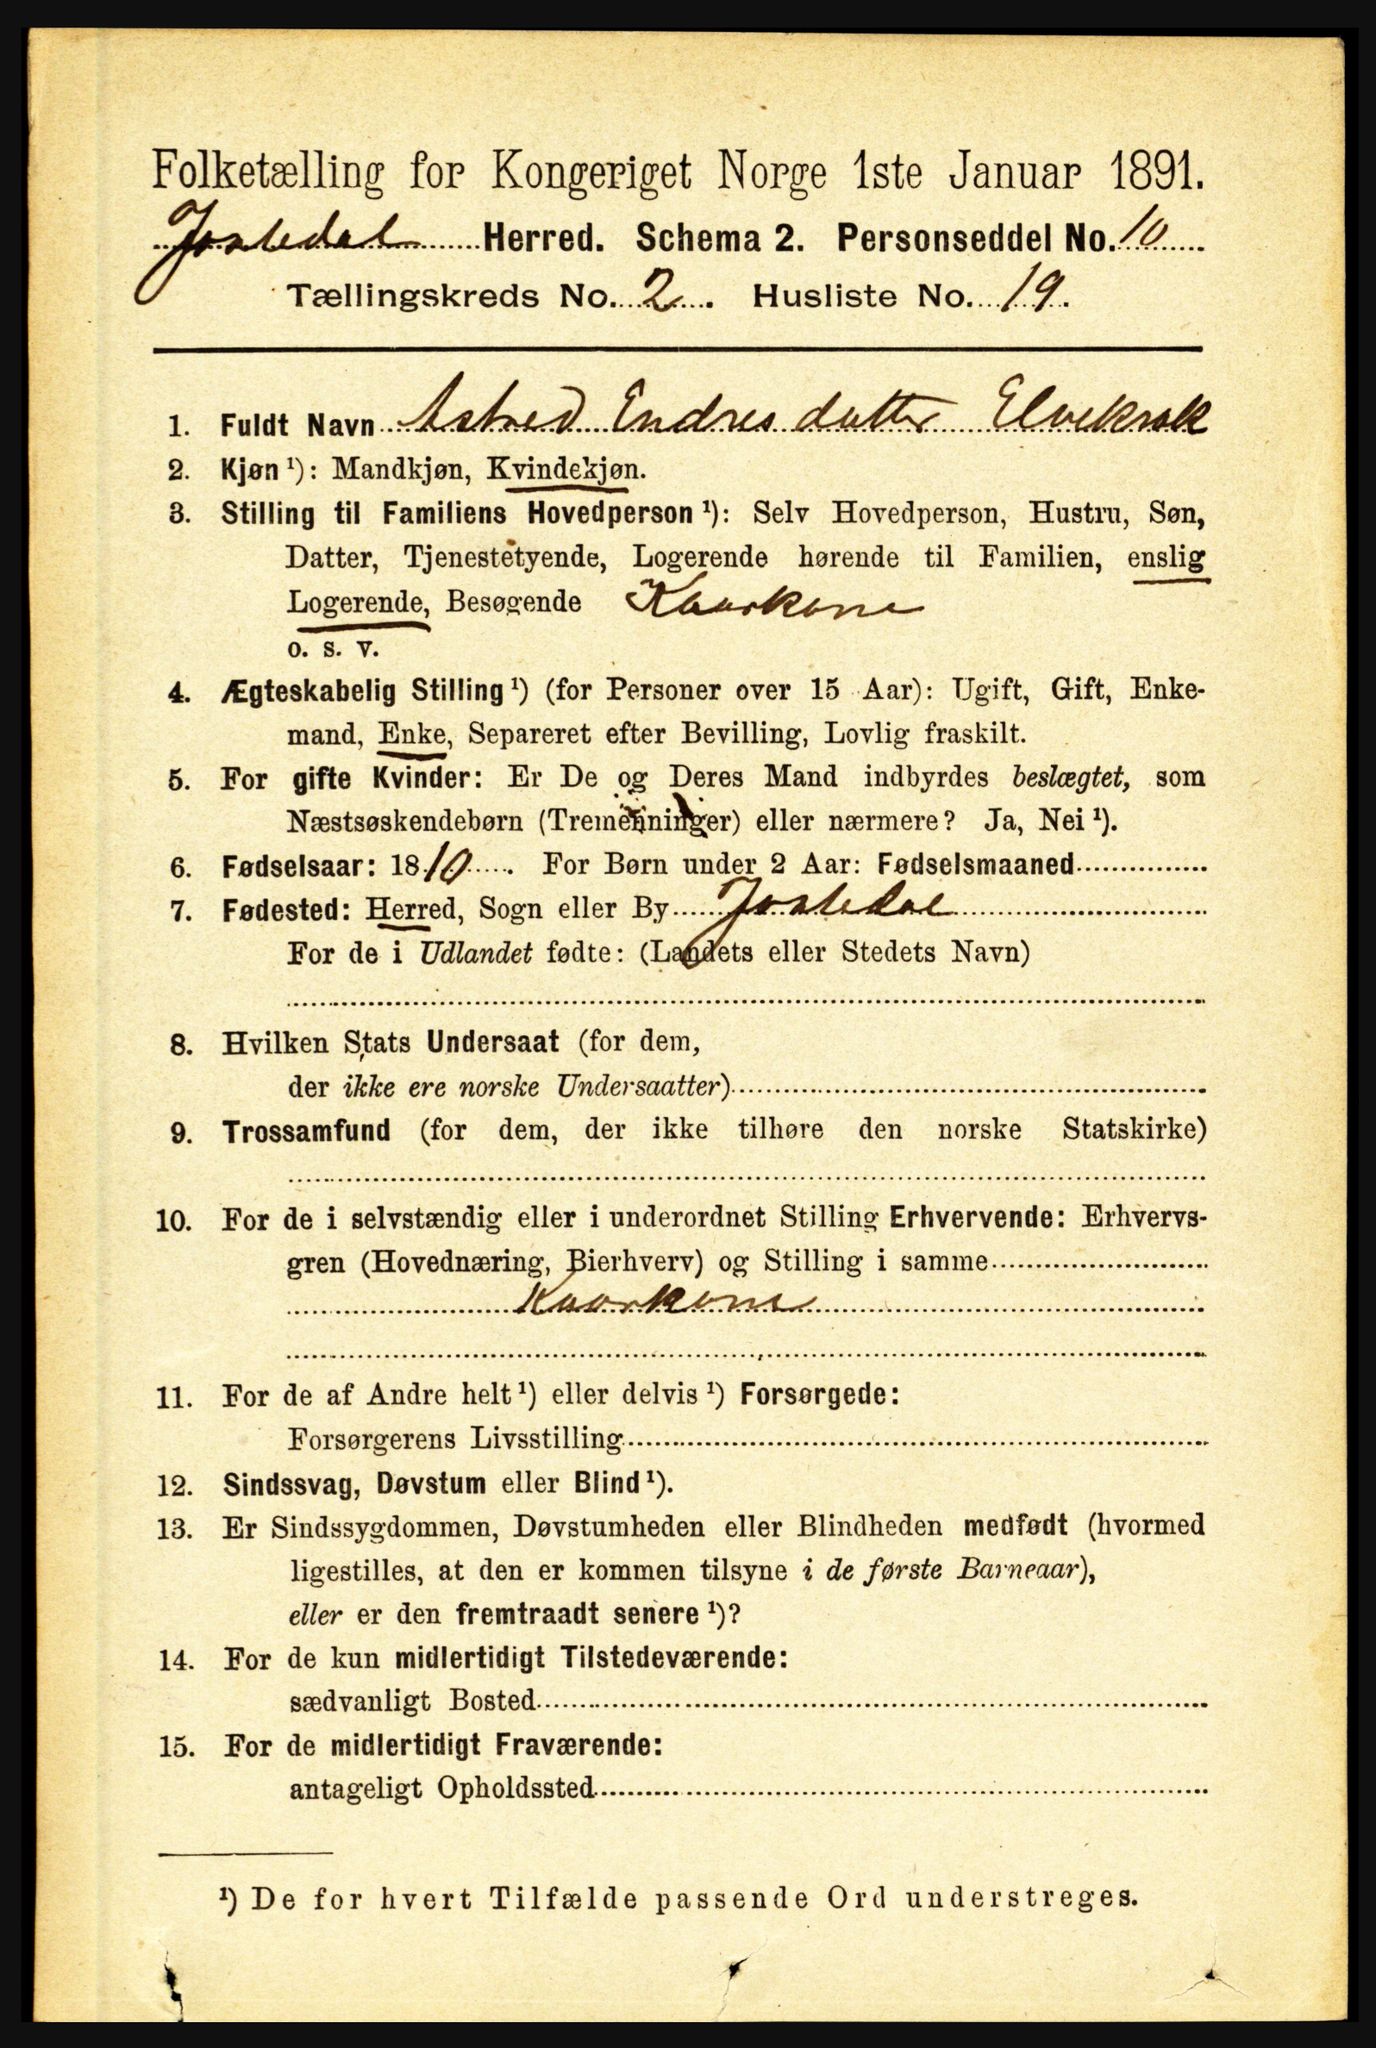 Folketælling for Kongeriget Norge 1ste Januar 1891.
Jostedal Herred. Schema 2. Personseddel No. 10
Tællingskreds No. 2. Husliste No. 19.
1. Fuldt Navn Astred Endresdatter Elvekrok
2. Kjøn ¹): Mandkjøn, Kvindekjøn.
3. Stilling til Familiens Hovedperson ¹): Selv Hovedperson, Hustru, Søn,
Datter, Tjenestetyende, Logerende hørende til Familien, enslig
Logerende, Besøgende Kaarkone
o. s. v.
4. Ægteskabelig Stilling ¹) (for Personer over 15 Aar): Ugift, Gift, Enke-
mand, Enke, Separeret efter Bevilling, Lovlig fraskilt.
5. For gifte Kvinder: Er De og Deres Mand indbyrdes beslægtet, som
Næstsøskendebørn (Tremenninger) eller nærmere? Ja, Nei ¹).
6. Fødselsaar: 1810. For Børn under 2 Aar: Fødselsmaaned
7. Fødested: Herred, Sogn eller By Jostedal
For de i Udlandet fødte: (Landets eller Stedets Navn)
8. Hvilken Stats Undersaat (for dem,
der ikke ere norske Undersaatter)
9. Trossamfund (for dem, der ikke tilhøre den norske Statskirke)
10. For de i selvstændig eller i underordnet Stilling Erhvervende: Erhvervs-
gren (Hovednæring, Bierhverv) og Stilling i samme
Kaarkone
11. For de af Andre helt ¹) eller delvis ¹) Forsørgede:
Forsørgerens Livsstilling
12. Sindssvag, Døvstum eller Blind ¹).
13. Er Sindssygdommen, Døvstumheden eller Blindheden medfødt (hvormed
ligestilles, at den er kommen tilsyne i de første Barneaar),
eller er den fremtraadt senere ¹)?
14. For de kun midlertidigt Tilstedeværende:
sædvanligt Bosted
15. For de midlertidigt Fraværende:
antageligt Opholdssted
¹) De for hvert Tilfælde passende Ord understreges.